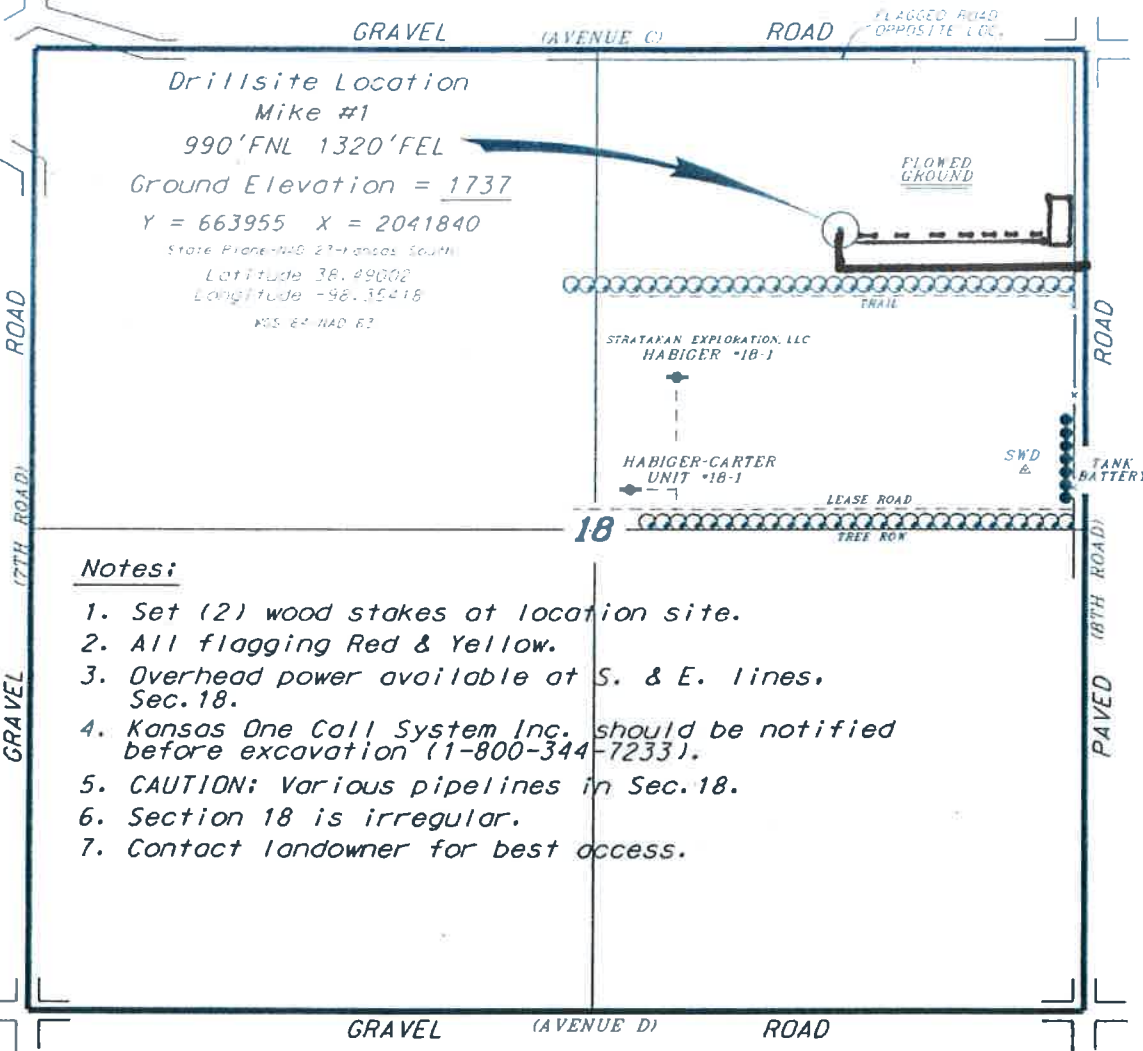 GRAVEL (AVENUE C) ROAD
FLAGGED ROAD
OPPOSITE LOC.
Drillsite Location
Mike #1
990'FNL 1320'FEL
Ground Elevation = 1737
Y = 663955 X = 2041840
State Plane-NAD 27-Kansas South
Latitude 38.49002
Longitude -98.35418
WGS 84-NAD 83
PLOWED
GROUND
TRAIL
STRATAKAN EXPLORATION, LLC
HABIGER #18-1
HABIGER-CARTER
UNIT #18-1
SWD
TANK
BATTERY
LEASE ROAD
TREE ROW
18
GRAVEL (7TH ROAD) ROAD
PAVED (8TH ROAD) ROAD
Notes:
1. Set (2) wood stakes at location site.
2. All flagging Red & Yellow.
3. Overhead power available at S. & E. lines,
Sec. 18.
4. Kansas One Call System Inc. should be notified
before excavation (1-800-344-7233).
5. CAUTION: Various pipelines in Sec. 18.
6. Section 18 is irregular.
7. Contact landowner for best access.
GRAVEL (AVENUE D) ROAD